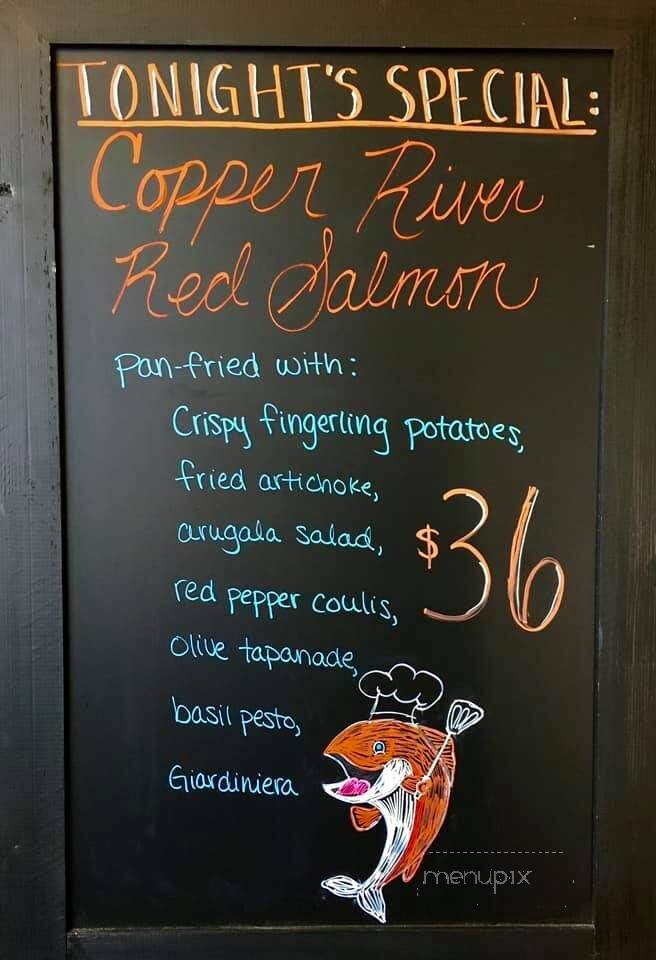 TONIGHT'S SPECIAL:
Copper River
Red Salmon
Pan-fried with:
Crispy fingerling potatoes,
fried artichoke,
arugala salad,
$36
red pepper coulis,
Olive tapanade,
basil pesto,
Giardiniera
menupix